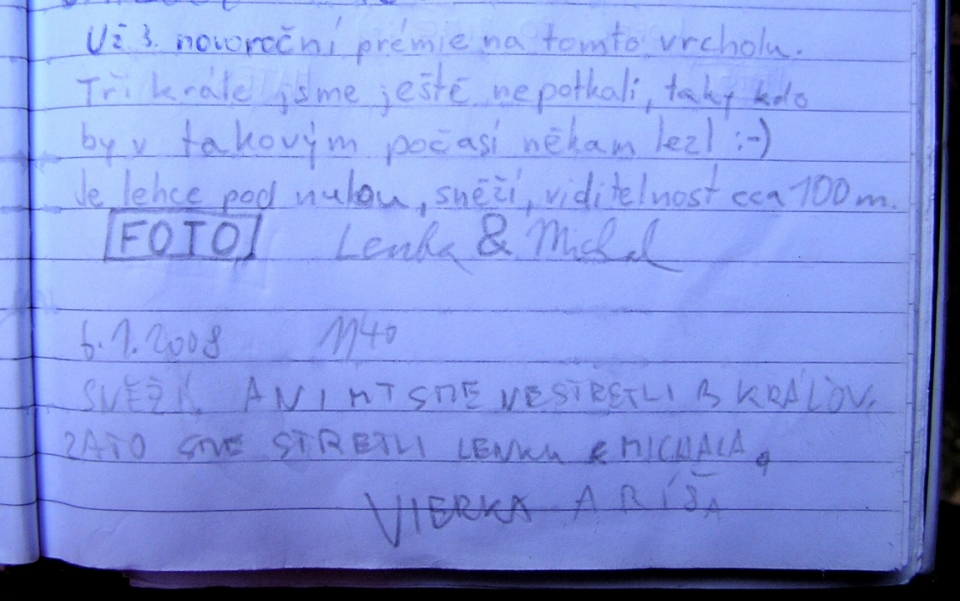 Už 3. novoroční prémie na tomto vrcholu.
Tři krále jsme ještě nepotkali, taky kdo
by v takovým počasí někam lezl :-)
Je lehce pod nulou, sněží, viditelnost cca 100 m.
FOTO Lenka & Michal
6.1.2008 1140
SNĚŽÍ, ANI MY SME NESTRETLI 3 KRÁĽOV,
ZATO SME STRETLI LENKU & MICHALA.
VIERKA A RÍŠA